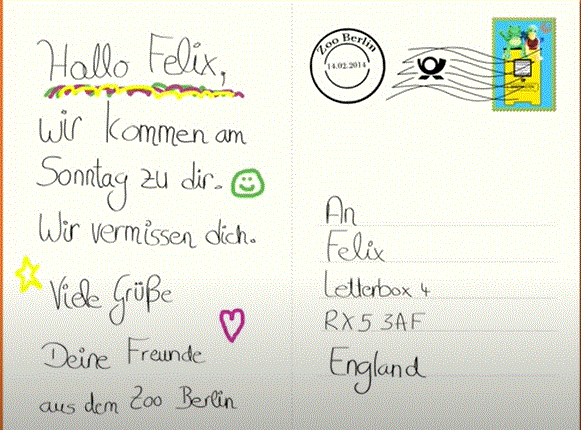 Hallo Felix,
wir kommen am
Sonntag zu dir.
Wir vermissen dich.
Viele Grüße
Deine Freunde
aus dem Zoo Berlin
Zoo Berlin
14.02.2014
An
Felix
Letterbox 4
RX5 3AF
England